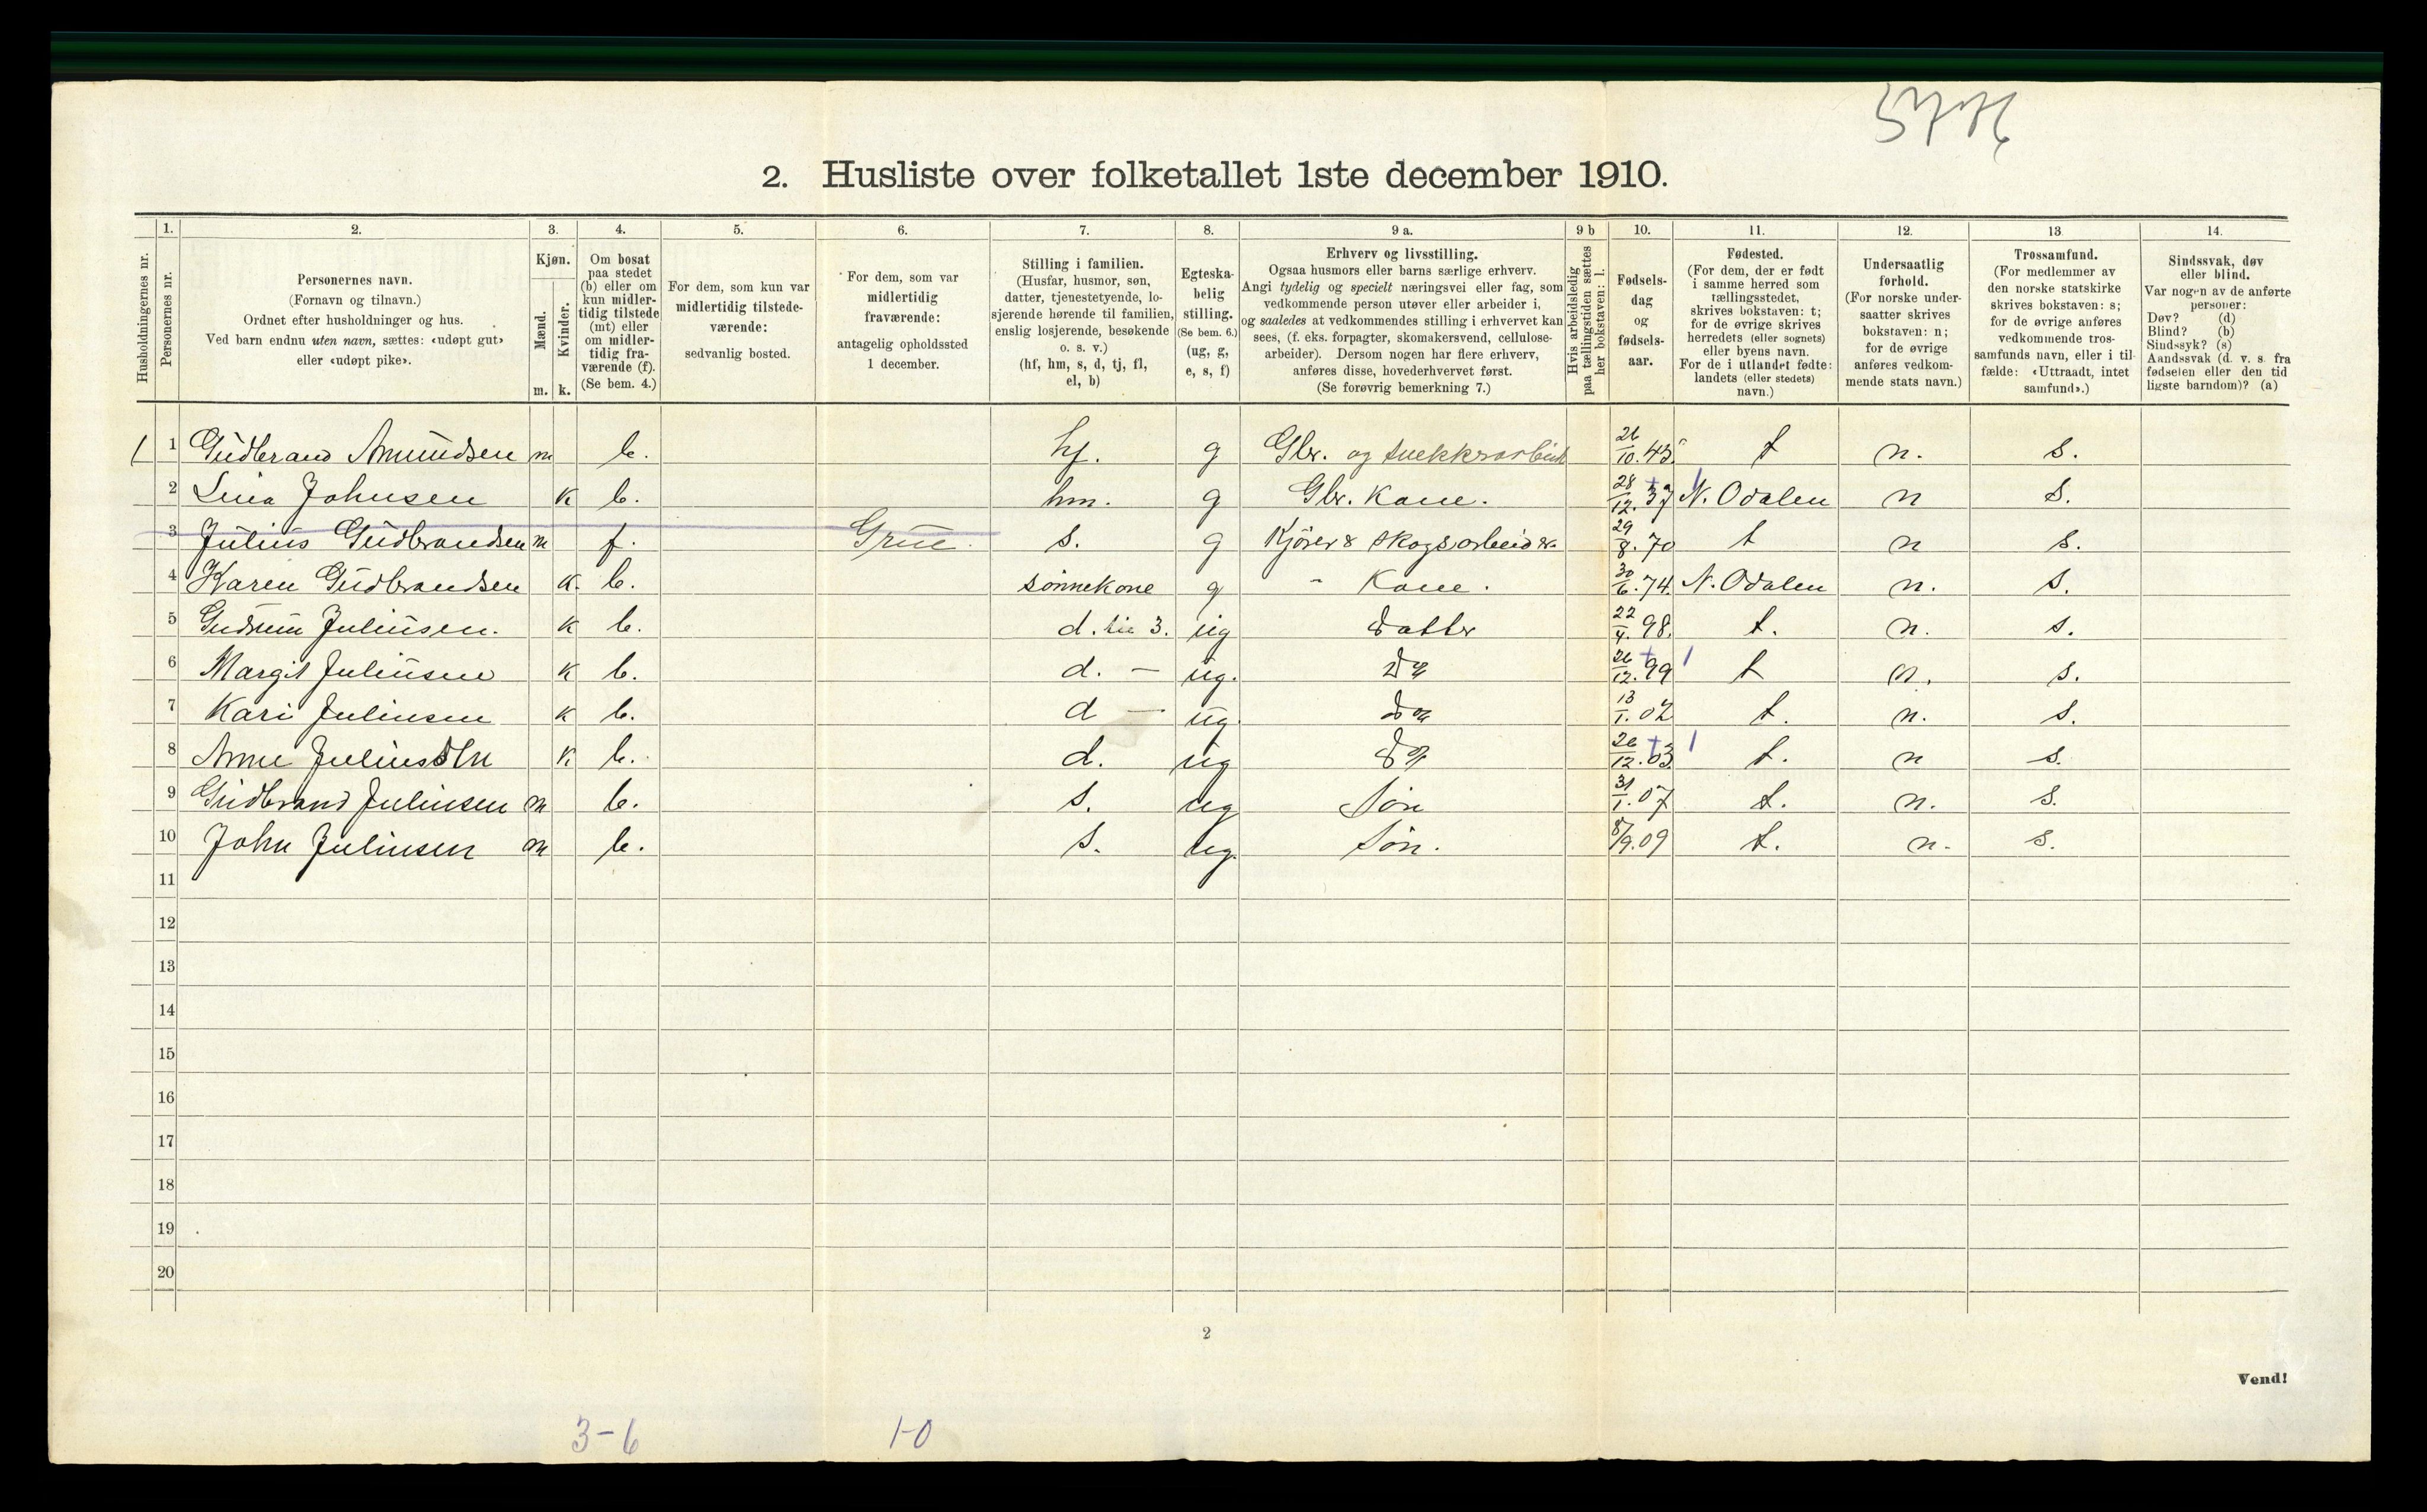 5776
2. Husliste over folketallet 1ste december 1910.
1. 2. 3. 4. 5. 6. 7. 8. 9 a. 9 b 10. 11. 12. 13. 14.
Husholdningernes nr.
Personernes nr.
Personernes navn. (Fornavn og tilnavn.) Ordnet efter husholdninger og hus. Ved barn endnu uten navn, sættes: «udøpt gut» eller «udøpt pike».
Kjøn. Mænd. Kvinder. m. k.
Om bosat paa stedet (b) eller om kun midlertidig tilstede (mt) eller om midlertidig fraværende (f). (Se bem. 4.)
For dem, som kun var midlertidig tilstedeværende: sedvanlig bosted.
For dem, som var midlertidig fraværende: antagelig opholdssted 1 december.
Stilling i familien. (Husfar, husmor, søn, datter, tjenestetyende, losjerende hørende til familien, enslig losjerende, besøkende o. s. v.) (hf, hm, s, d, tj, fl, el, b)
Egteskabelig stilling. (Se bem. 6.) (ug, g, e, s, f)
Erhverv og livsstilling. Ogsaa husmors eller barns særlige erhverv. Angi tydelig og specielt næringsvei eller fag, som vedkommende person utøver eller arbeider i, og saaledes at vedkommendes stilling i erhvervet kan sees, (f. eks. forpagter, skomakersvend, cellulosearbeider). Dersom nogen har flere erhverv, anføres disse, hovederhvervet først. (Se forøvrig bemerkning 7.)
Hvis arbeidsledig paa tællingstiden sættes her bokstaven: l.
Fødselsdag og fødselsaar.
Fødested. (For dem, der er født i samme herred som tællingsstedet, skrives bokstaven: t; for de øvrige skrives herredets (eller sognets) eller byens navn. For de i utlandet fødte: landets (eller stedets) navn.)
Undersaatlig forhold. (For norske undersaatter skrives bokstaven: n; for de øvrige anføres vedkommende stats navn.)
Trossamfund. (For medlemmer av den norske statskirke skrives bokstaven: s; for de øvrige anføres vedkommende trossamfunds navn, eller i tilfælde: «Uttraadt, intet samfund».)
Sindssvak, døv eller blind. Var nogen av de anførte personer: Døv? (d) Blind? (b) Sindssyk? (s) Aandssvak (d. v. s. fra fødselen eller den tidligste barndom)? (a)
1 1 Gudbrand Amundsen m b. hf. g Gbr. og 26/10.45 t n. s.
2 Lina Johnsen k b. hm. g Gbr. Kone. 28/12.37 N. Odalen n s.
3 Julius Gudbrandsen m f. Grue. s. g Kjører & skogsarbeider 29/8.70 t n s.
4 Karen Gudbrandsen k. b. sønnekone g " Kone. 30/6.74. N. Odalen n. s.
5 Gudrun Juliusen. k b. d. til 3. ug datter 22/4.98. t. n. s.
6 Margit Juliusen k b. d. — ug. do 26/12.99 t n. s.
7 Kari Juliusen k b. d — ug do 13/1.02 t. n. s.
8 Anne Juliussen k b. d. ug do 26/12.03. t. n s.
9 Gudbrand Juliusen m b. s. ug Søn 31/1.07 t. n. s.
10 John Juliusen m b. s. ug. Søn. 8/9.09 t. n. s.
11
12
13
14
15
16
17
18
19
20
2
Vend!
3-6 1-0